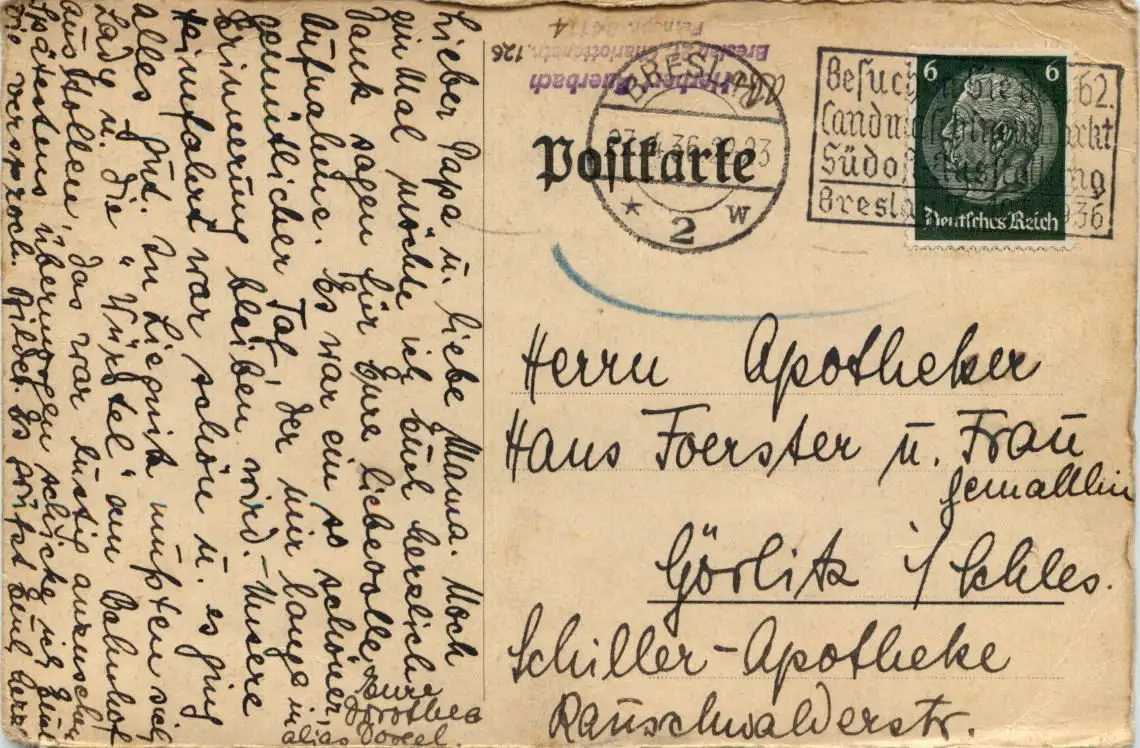 Lieber Papa u. liebe Mama. Noch
ein Mal möchte ich Euch herzlich
Dank sagen für Eure liebevolle
Aufnahme. Es war ein so schöner,
gemütlicher Tag, der mir lange in
Erinnerung bleiben wird. Unsere
Heimfahrt war schön u. es ging
alles gut. In Liegnitz mußten sich
Lady u. die "Würstel" am Bahnhof
austollen, das war lustig anzuschn.
Spätestens übermorgen schicke ich Euch
die versproch. Bilder. Es grüßt Euch herzl.
Eure
Dorothea
alias Doxel.
Herbert Auerbach
Breslau 21, Charlottenstr. 126
Fernspr. 84114
Postkarte
BRESLAU
23.4.36.
* 2 w
Besuchen Sie den 62.
Landmaschinenmarkt
Südost-Ausstellung
Breslau 1936
6 6
Deutsches Reich
Herrn Apotheker
Hans Foerster u. Frau
Gemahlin
Görlitz i/Schles.
Schiller-Apotheke
Rauschwalderstr.